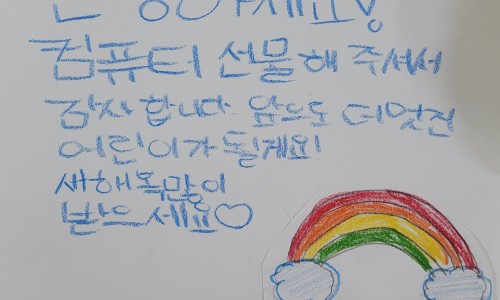 안녕하세요!
컴퓨터 선물해 주셔서
감사합니다 앞으로도 더멋진
어린이가 될게요!
새해복많이
받으세요♡